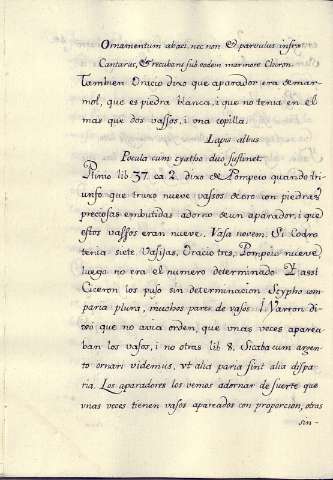 Ornamentum abaci, nec non & parvulus infra
Cantarus, & recubans sub eodem marmore Chiron.
Tambien Oracio dixo que aparador era de mar-
mol, que es piedra blanca, i que no tenia en el
mas que dos vassos, i una copilla.
Lapis albus
Pocula cum cyatho duo sustinet.
Plinio lib 37. ca 2. dixo de Pompeio quando tri-
unfo que truxo nueve vassos de oro con piedras
preciosas embutidas adorno de un aparador, i que
estos vassos eran nueve. Vasa novem. Si Codro
tenia siete Vasijas, Oracio tres, Pompeio nueve
luego no era el numero determinado. I assi
Ciceron los puso sin determinacion Scypho com-
paria plura, muchos pares de vasos. I Varron di-
xo que no avia orden, que unas veces aparea-
ban los vasos, i no otras lib 8. Sic abacum argen-
to ornari videmus, ut alia paria sint alia dispa-
ria. Los aparadores los vemos adornar de suerte que
unas veces tienen vasos apareados con proporcion, otras
sin-